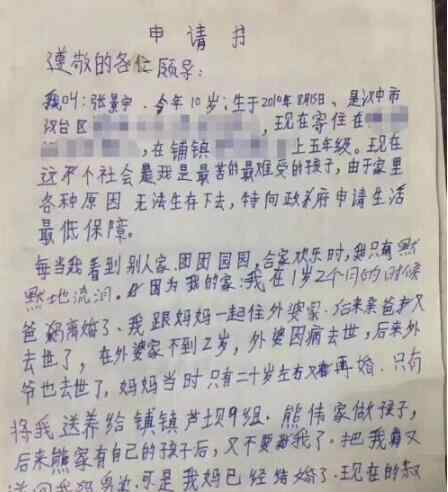 申请书
尊敬的各位领导:
我叫:张景中.今年10岁;生于2010年8月15日、是汉中市
汉台区,现在寄住在
,在铺镇上五年级。现在
这个社会是我是最苦的最难受的孩子,由于家里
各种原因 无法生存下去,特向政府申请生活
最低保障。
每当我看到别人家.团团圆圆,合家欢乐时,我只有默
默地流泪。因为我的家:我在1岁2个月的时候
爸妈离婚了、我跟妈妈一起住外婆家.后来亲爸爸又
去世了,在外婆家不到2岁,外婆因病去世,后来外
爷也去世了,妈妈当时只有二十岁左右又再婚.只有
将我送养给铺镇芦坝9组.熊伟家做孩子,
后来熊家有自己的孩子后,又不要我了.把我又
送回我妈身边.可是我妈已经结婚了.现在的叔